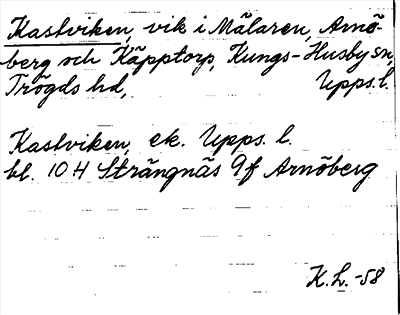 Kastviken, vik i Mälaren, Arnö-
berg och Käpptorp, Kungs-Husby sn,
Trögds hd, Upps. l.
Kastviken, ek. Upps. l.
bl. 10 H Strängnäs 9f Arnöberg
K.L.-58